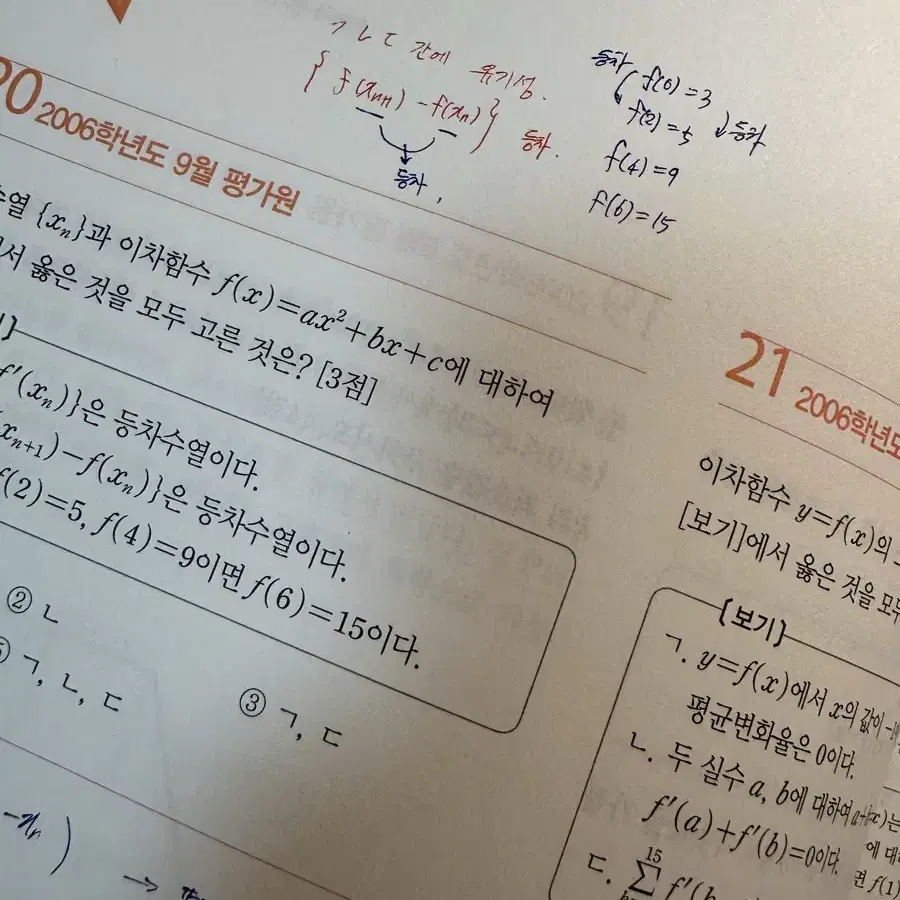 ㄱ ㄴ ㄷ 간에 유기성.
{ f(xn+1) - f(xn) } 등차.
등차,
등차 f(0)=3
f(2)=5 등차
f(4)=9
f(6)=15
20 2006학년도 9월 평가원
수열 {xₙ}과 이차함수 f(x)=ax²+bx+c에 대하여
서 옳은 것을 모두 고른 것은? [3점]
f′(xₙ)}은 등차수열이다.
(xₙ₊₁)-f(xₙ)}은 등차수열이다.
f(2)=5, f(4)=9이면 f(6)=15이다.
② ㄴ
③ ㄱ, ㄷ
⑤ ㄱ, ㄴ, ㄷ
-xₙ )
→
21 2006학년도
이차함수 y=f(x)의
[보기]에서 옳은 것을 모두
[보기]
ㄱ. y=f(x)에서 x의 값이
평균변화율은 0이다.
ㄴ. 두 실수 a, b에 대하여
f′(a)+f′(b)=0이다.
ㄷ. 15 ∑ f′(
에 대
면 f(1)